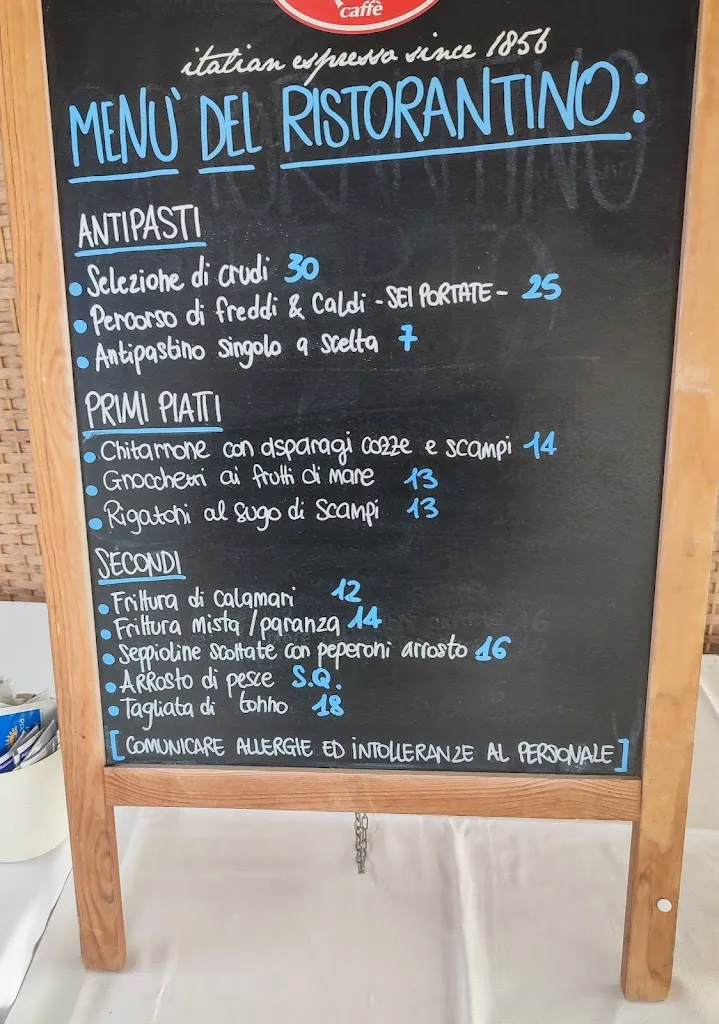 caffè
italian espresso since 1856
MENU' DEL RISTORANTINO:
ANTIPASTI
Selezione di crudi 30
Percorso di freddi & Caldi - SEI PORTATE - 25
Antipastino singolo a scelta 7
PRIMI PIATTI
Chitarrone con asparagi cozze e scampi 14
Gnocchetti ai frutti di mare 13
Rigatoni al sugo di scampi 13
SECONDI
Frittura di calamari 12
Frittura mista / paranza 14
Seppioline scottate con peperoni arrosto 16
ARROSTO di pesce S.Q.
Tagliata di tonno 18
[COMUNICARE ALLERGIE ED INTOLLERANZE AL PERSONALE]